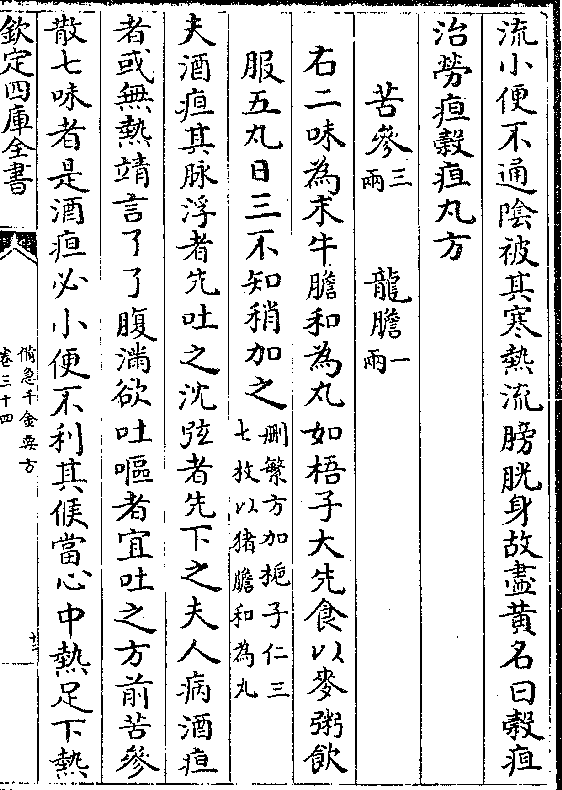 流小便不通陰被其寒熱流膀胱身故盡黃名曰穀疸
治勞疸穀疸丸方
苦參三兩　龍膽一兩
右二味為末牛膽和為丸如梧子大先食以麥粥飲
服五丸日三不知稍加之刪繁方加梔子仁三七枚以猪膽和為丸
夫酒疸其脉浮者先吐之沈弦者先下之夫人病酒疸
者或無熱靖言了了腹滿欲吐嘔者宜吐之方前苦參
散七味者是酒疸必小便不利其候當心中熱足下熱
欽定四庫全書
備急千金要方
卷三十四